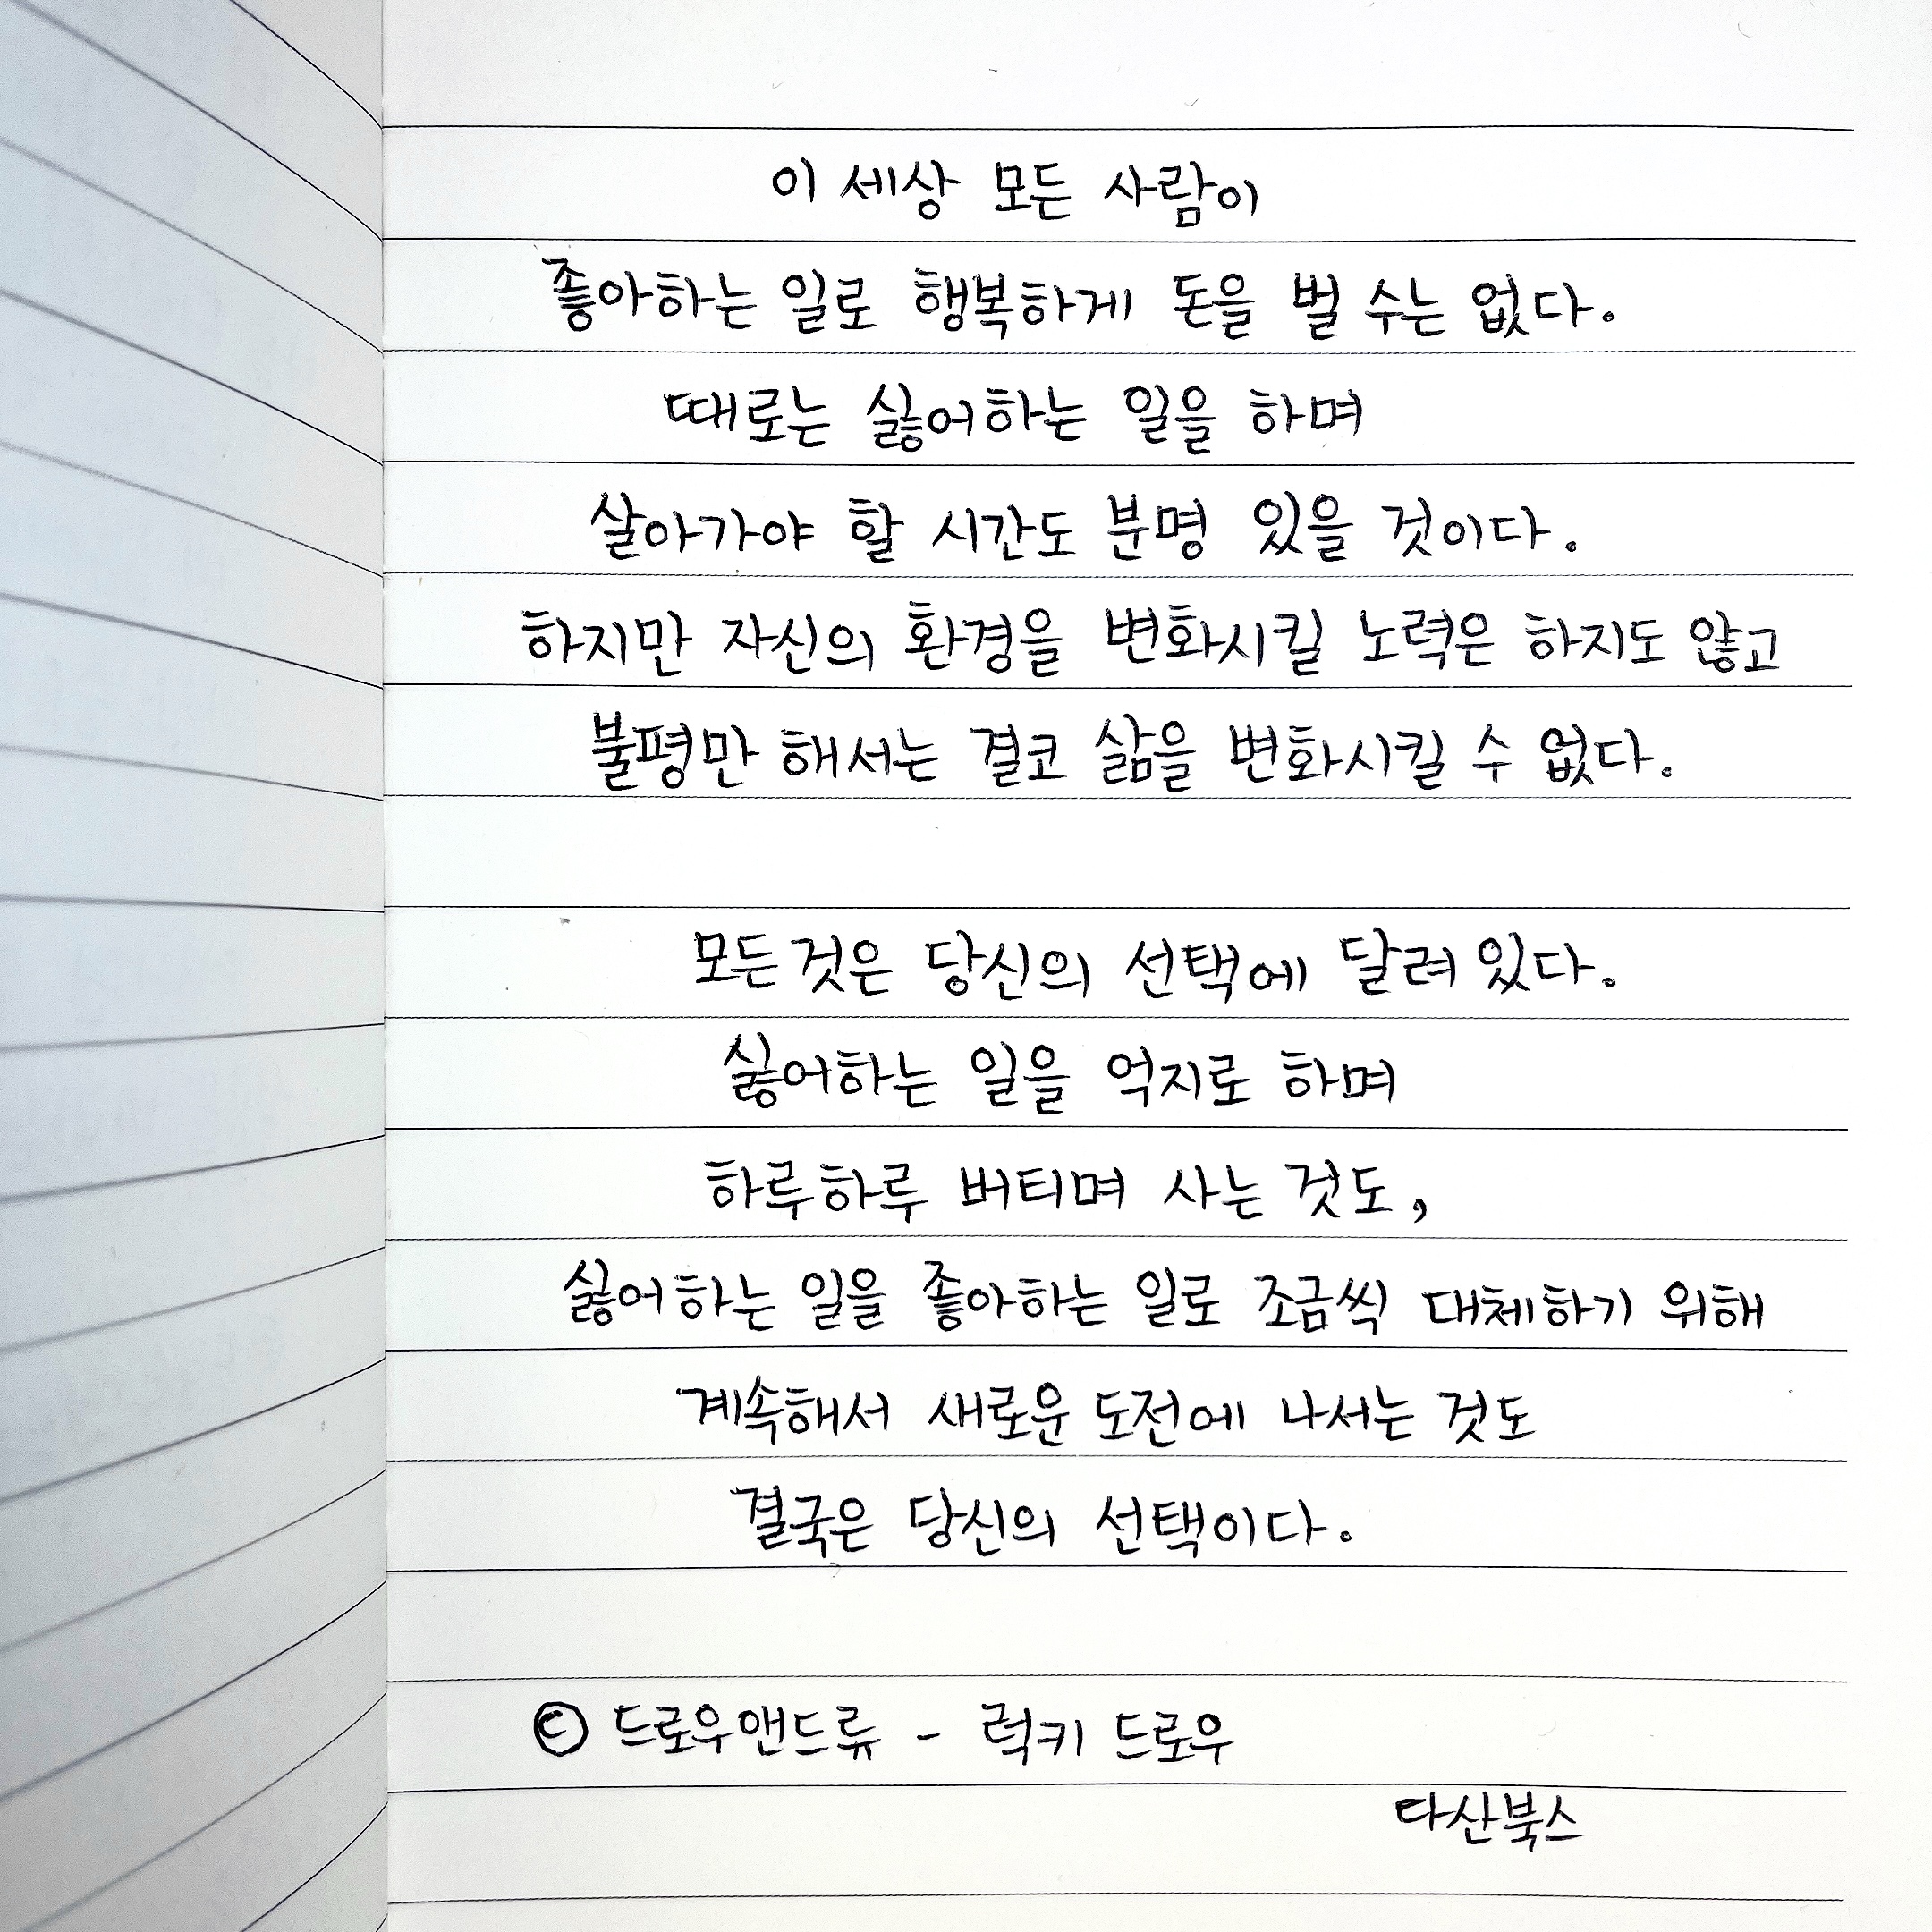 이 세상 모든 사람이
좋아하는 일로 행복하게 돈을 벌 수는 없다.
때로는 싫어하는 일을 하며
살아가야 할 시간도 분명 있을 것이다.
하지만 자신의 환경을 변화시킬 노력은 하지도 않고
불평만 해서는 결코 삶을 변화시킬 수 없다.
모든 것은 당신의 선택에 달려 있다.
싫어하는 일을 억지로 하며
하루하루 버티며 사는 것도,
싫어하는 일을 좋아하는 일로 조금씩 대체하기 위해
계속해서 새로운 도전에 나서는 것도
결국은 당신의 선택이다.
© 드로우앤드류 - 럭키 드로우
다산북스